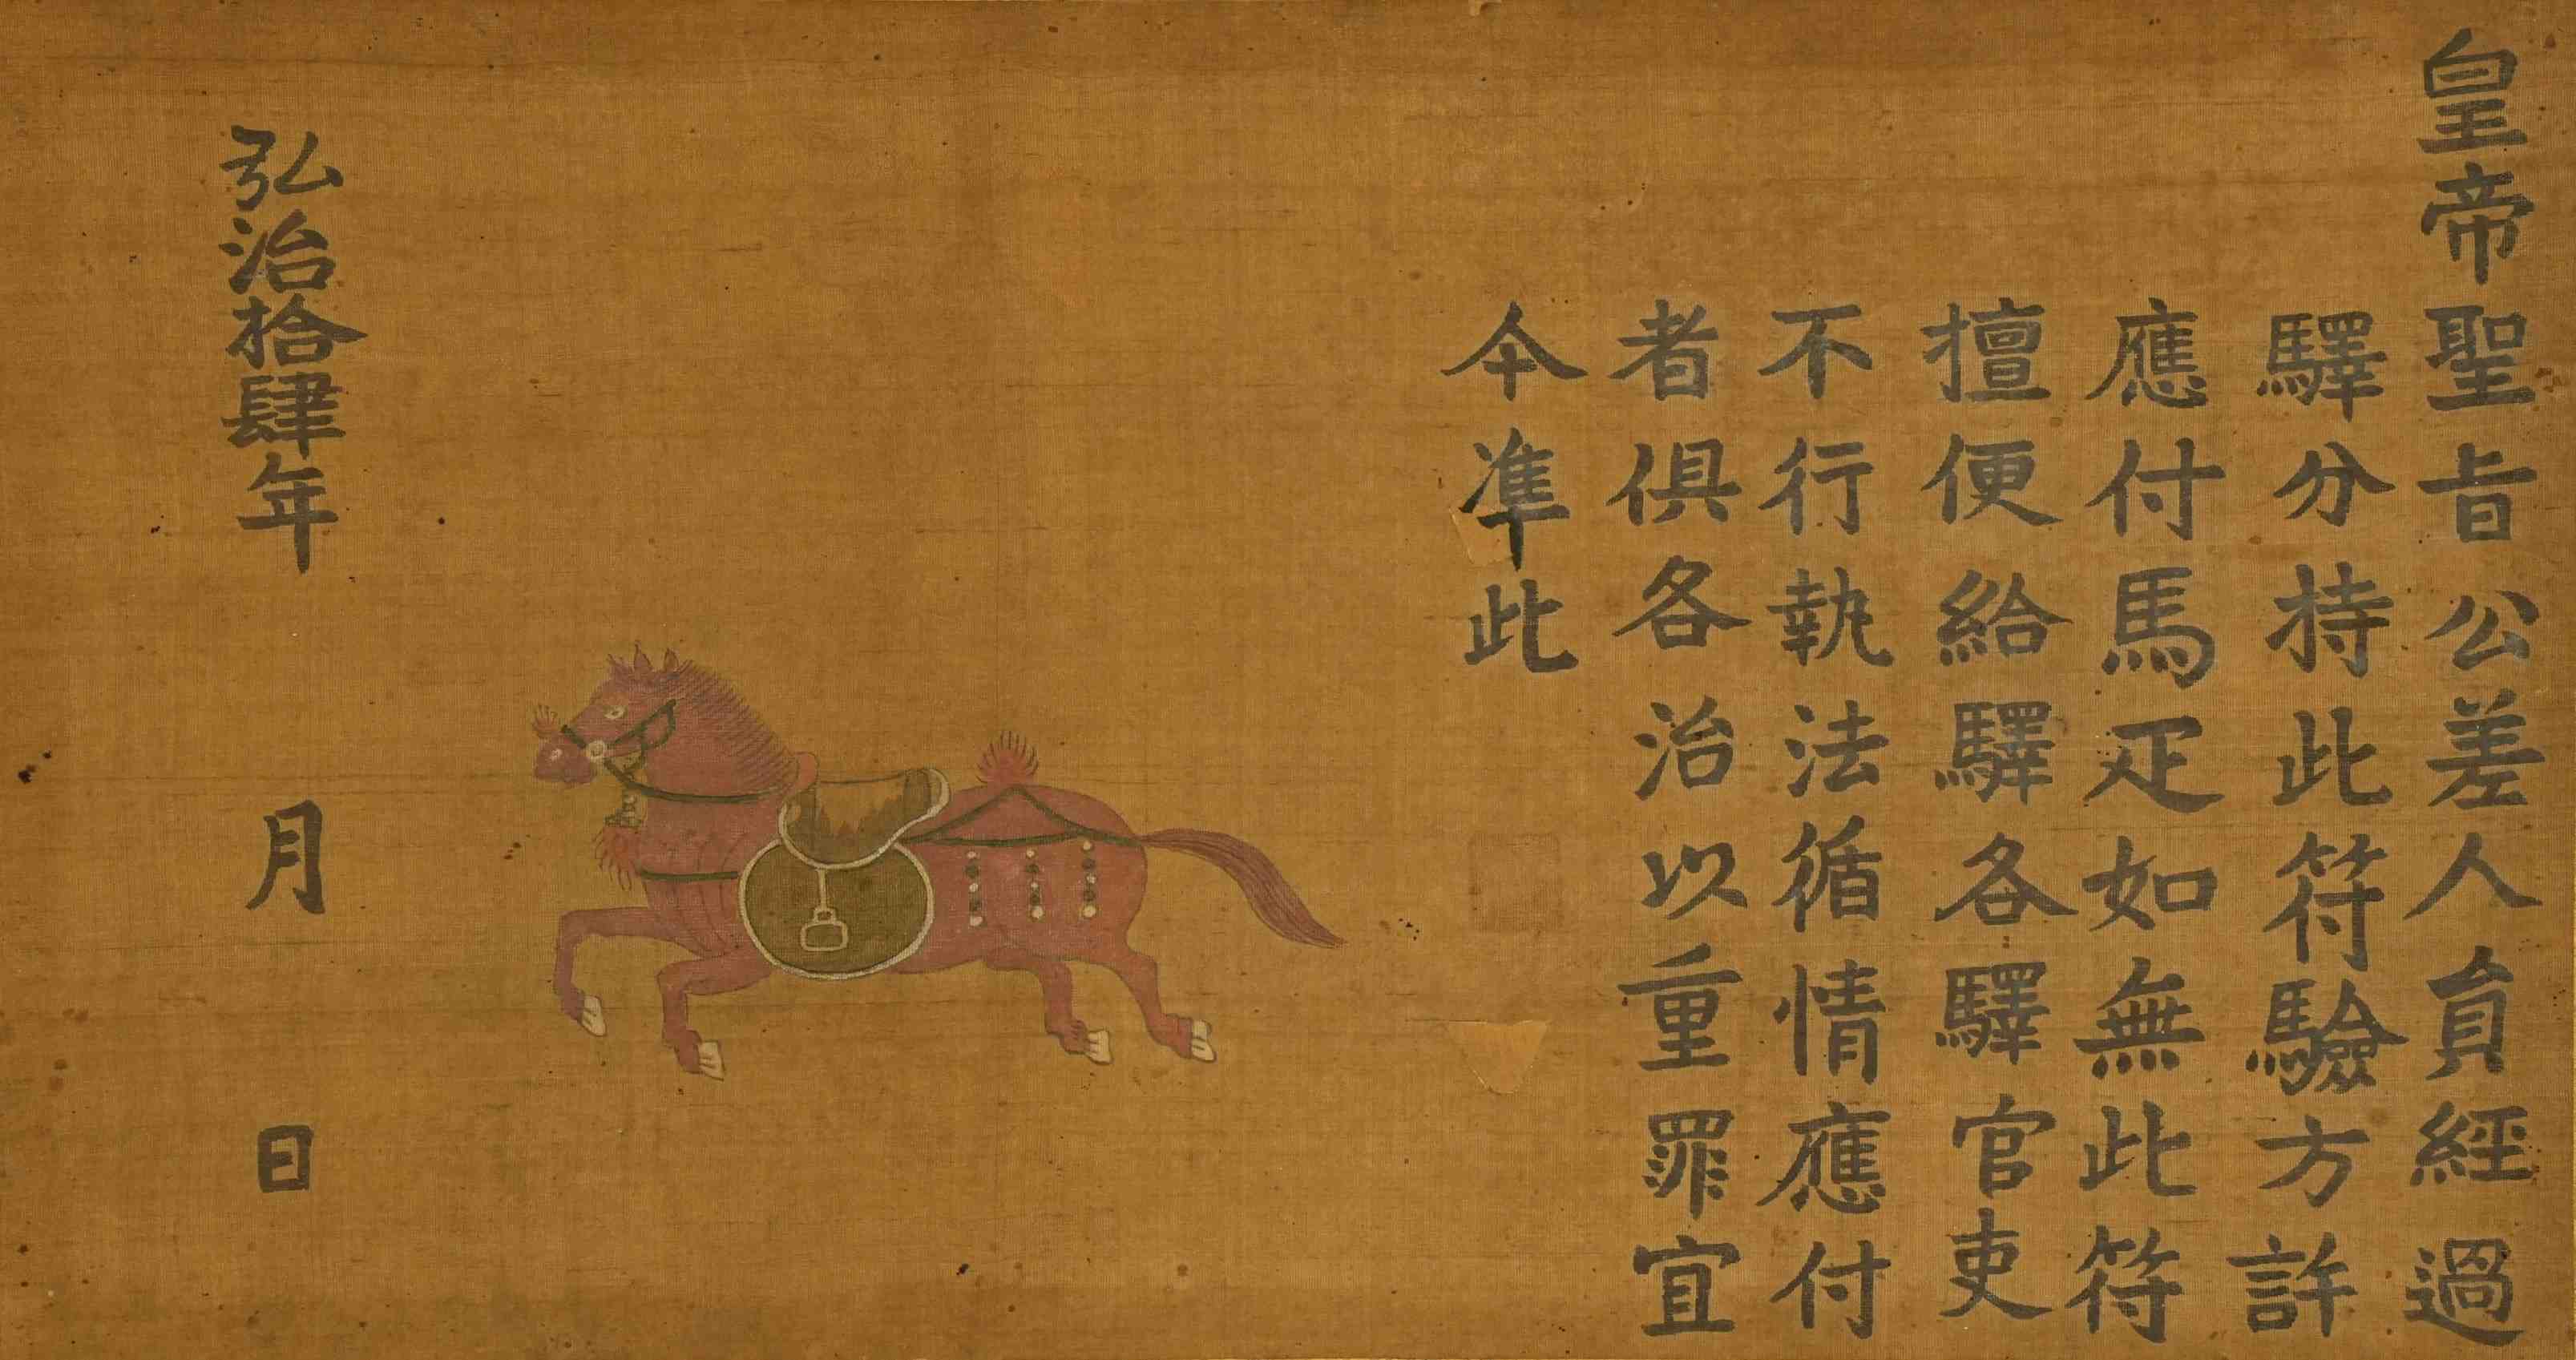 皇帝聖旨公差人員經過
驛分持此符驗方許
應付馬疋如無此符
擅便給驛各驛官吏
不行執法循情應付
者俱各治以重罪宜
令準此
弘治拾肆年 月 日